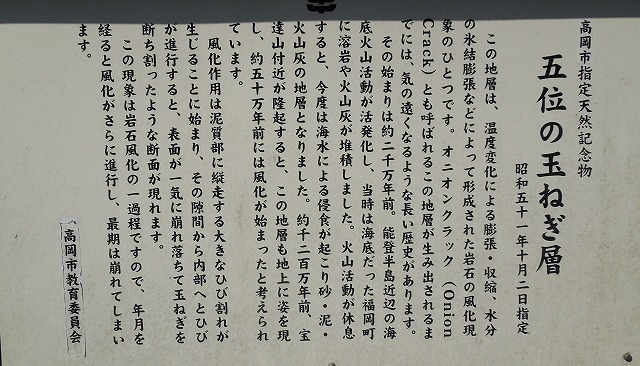 高岡市指定天然記念物
五位の玉ねぎ層
昭和五十一年十月二日指定
この地層は、温度変化による膨張・収縮、水分
の氷結膨張などによって形成された岩石の風化現
象のひとつです。オニオンクラック（Onion
Crack）とも呼ばれるこの地層が生み出されるま
でには、気の遠くなるような長い歴史があります。
その始まりは約二千万年前。能登半島近辺の海
底火山活動が活発化し、当時は海底だった福岡町
に溶岩や火山灰が堆積しました。火山活動が休息
すると、今度は海水による侵食が起こり砂・泥・
火山灰の地層となりました。約千二百万年前、宝
達山付近が隆起すると、この地層も地上に姿を現
し、約五十万年前には風化が始まったと考えられ
ています。
風化作用は泥質部に縦走する大きなひび割れが
生じることに始まり、その隙間から内部へとひび
が進行すると、表面が一気に崩れ落ちて玉ねぎを
断ち割ったような断面が現れます。
この現象は岩石風化の一過程ですので、年月を
経ると風化がさらに進行し、最期は崩れてしまい
ます。
高岡市教育委員会